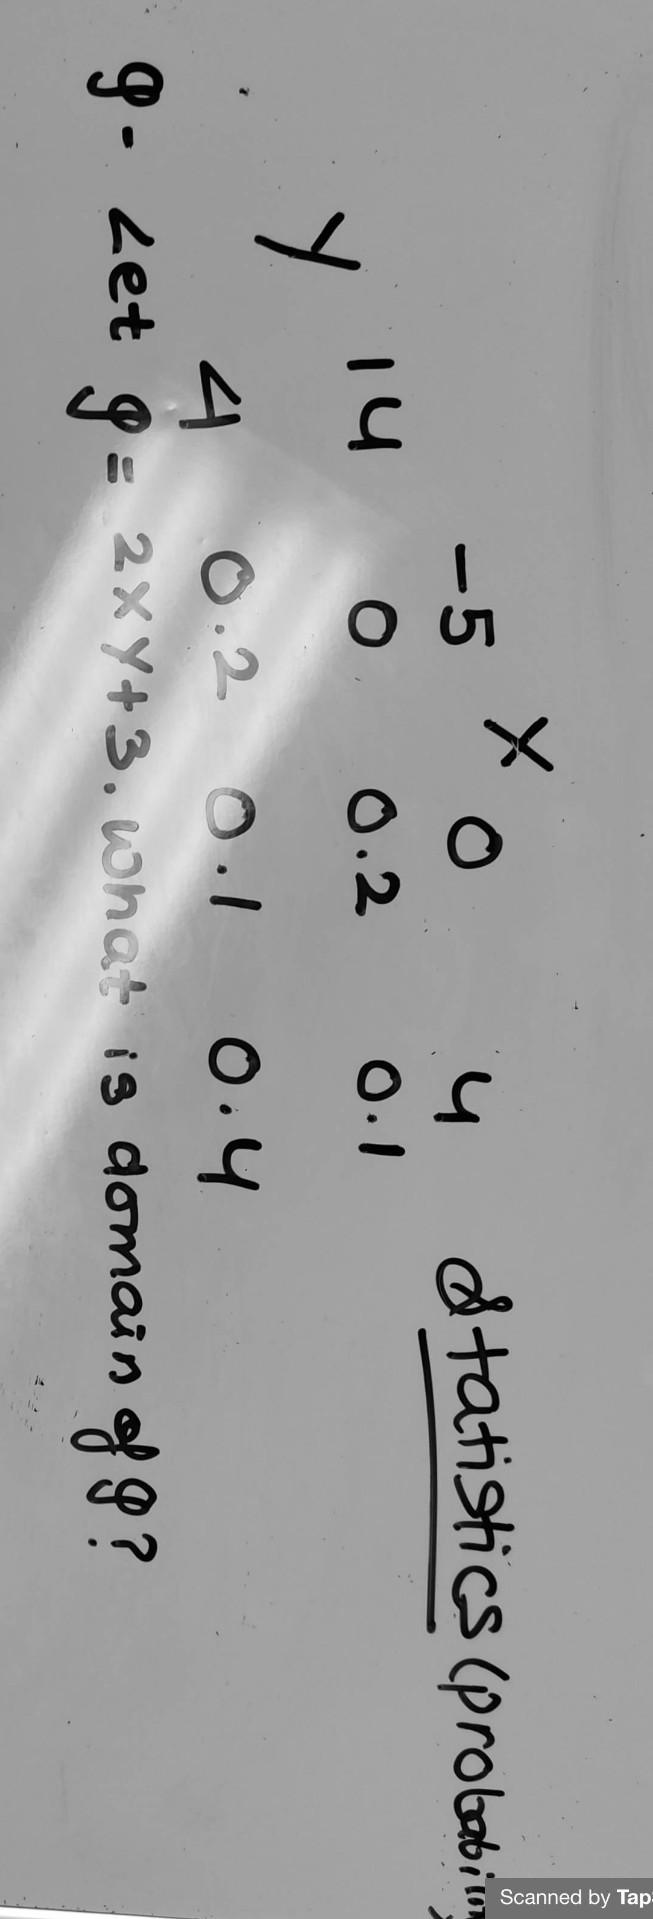 Statistics (probability
X
-5 0 4
14 0 0.2 0.1
Y
4 0.2 0.1 0.4
g- Let g = 2XY+3. What is domain of g?
Scanned by Tap